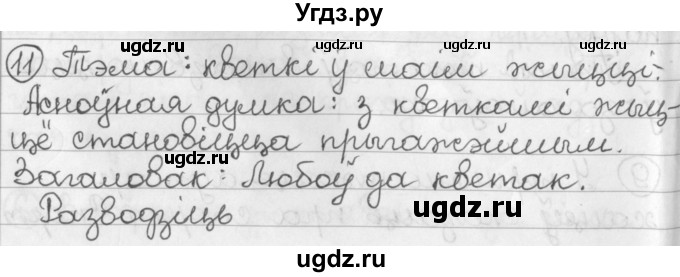 Угдз.ру
ugdz.ru ugdz.ru
11 Тэма: кветкі у маім жыцці.
ugdz.ru
Асноўная думка: з кветкамі жыц-
цё становіцца прыгажэйшым.
ugdz.ru
Загаловак: Любоў да кветак.
Разводзіць
ugdz.ru
ugdz.ru ugdz.ru